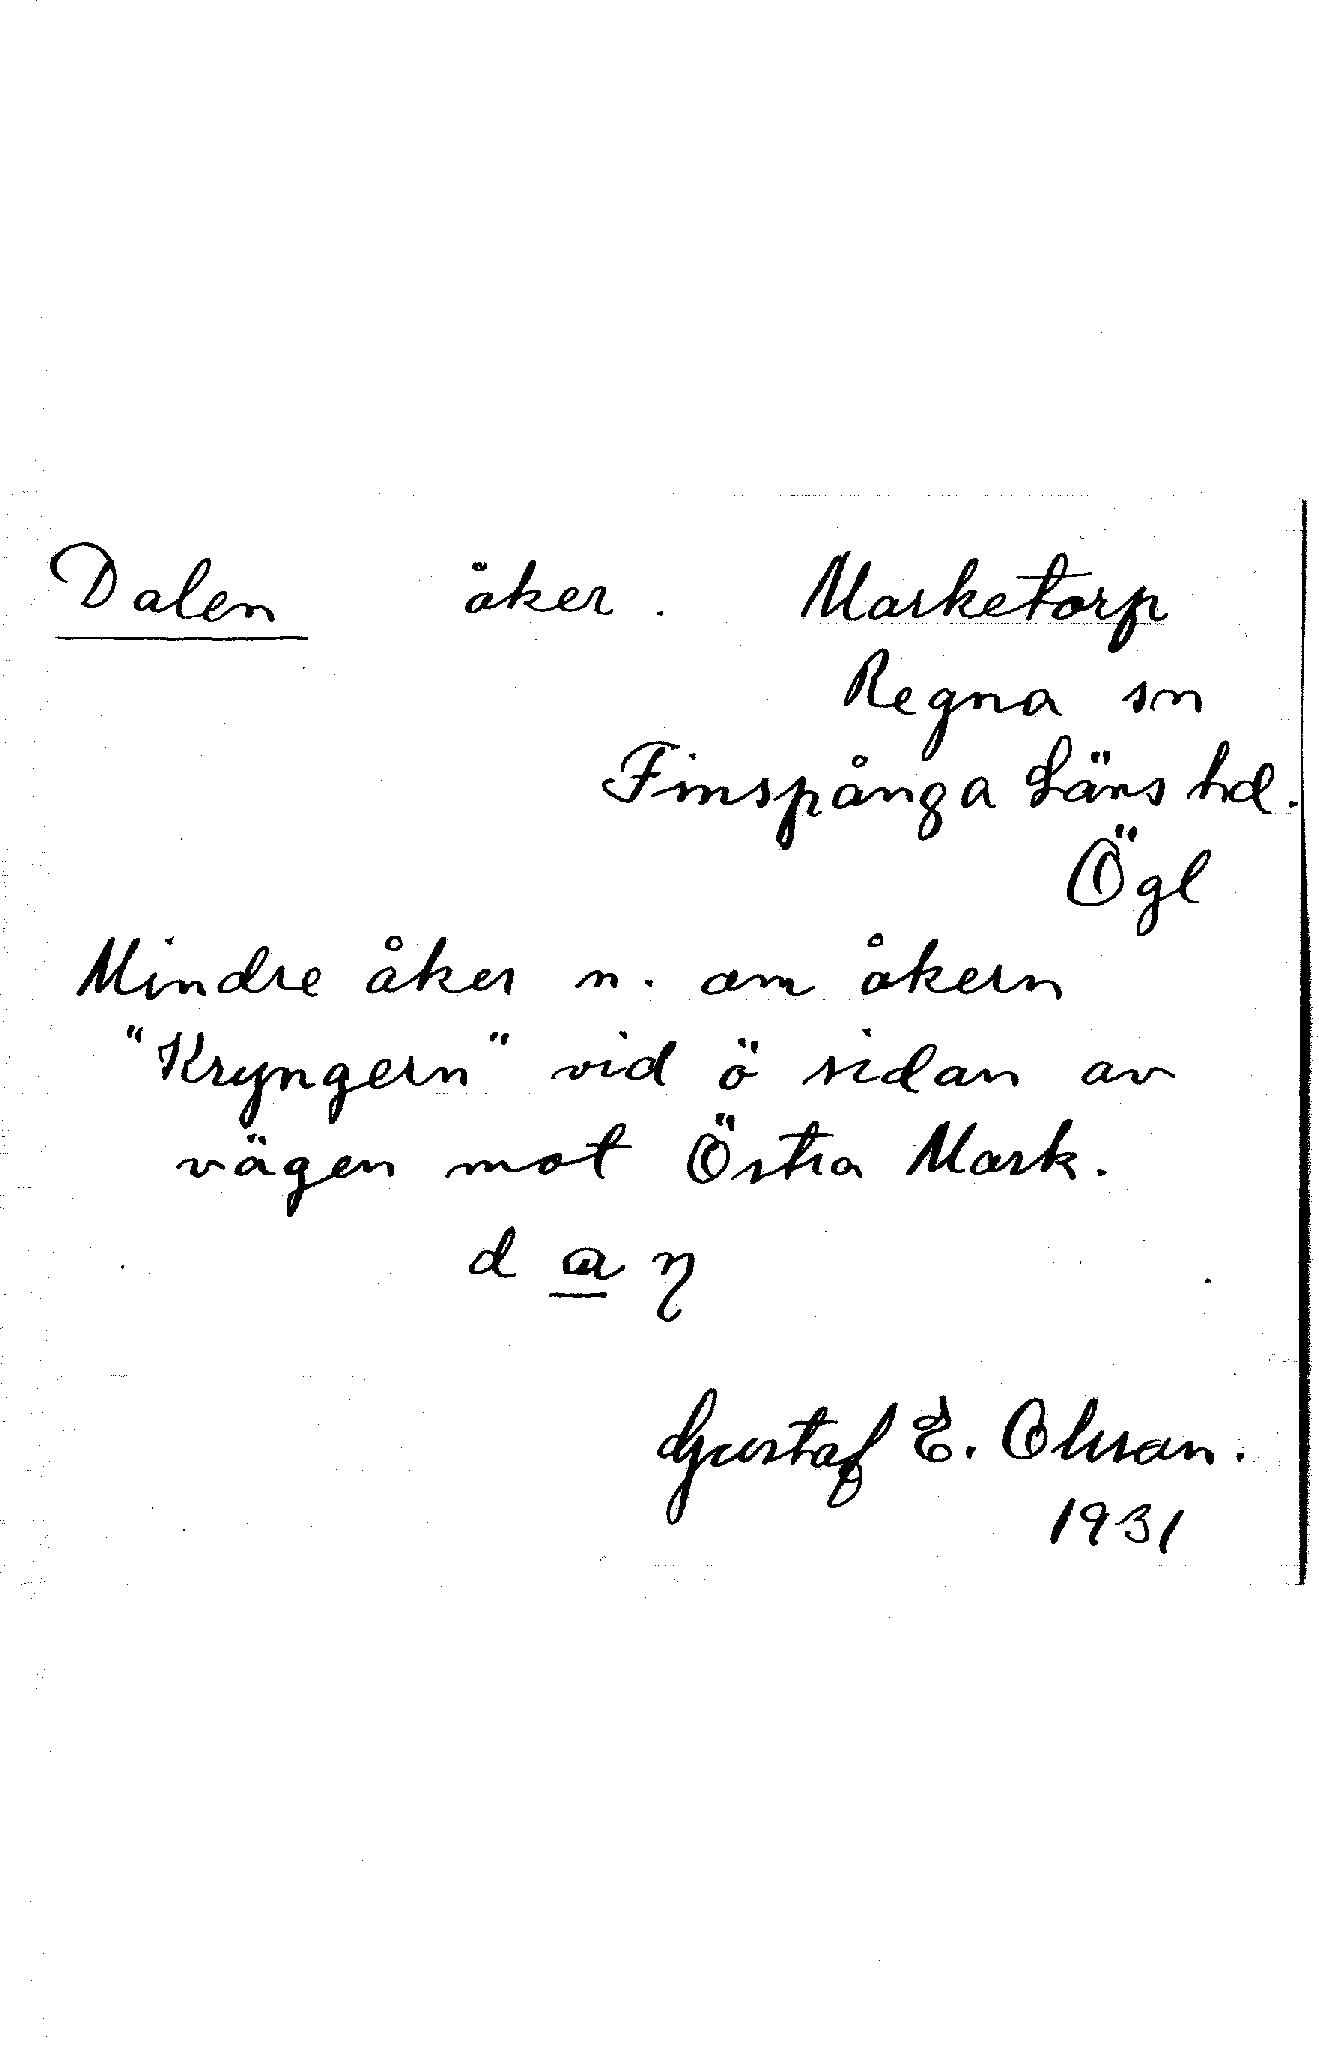 Dalen åker. Marketorp
Regna sn
Finspånga Läns hd.
Ögl
Mindre åker n. om åkern
"Kryngern" vid ö sidan av
vägen mot Östra Mark.
d a ŋ
Gustaf E. Olsson.
1931